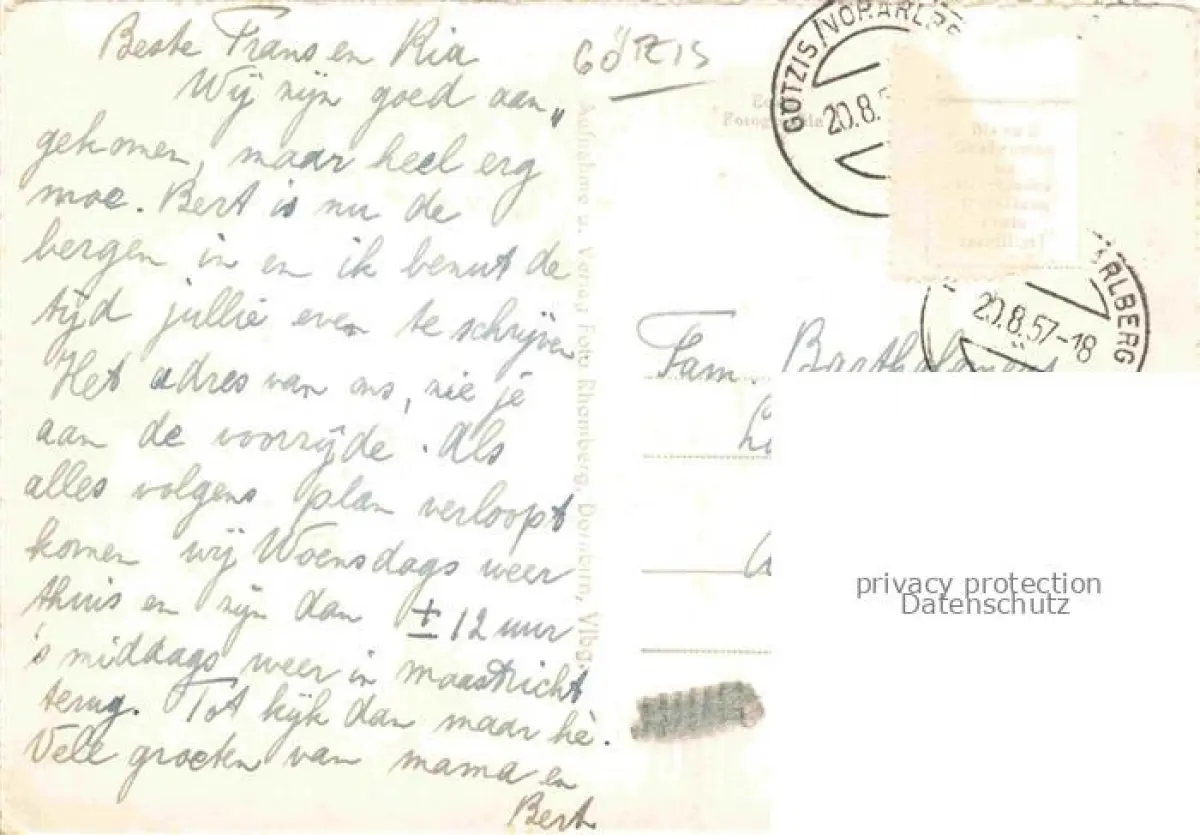 Beste Frans en Ria
Wij zijn goed aan„
gekomen, maar heel erg
moe. Bert is nu de
bergen in en ik benut de
tijd jullie even te schrijven
Het adres van ons, zie je
aan de voorzijde. Als
alles volgens plan verloopt
komen wij Woensdags weer
thuis en zijn dan ± 12 uur
's middags weer in maastricht
terug. Tot kijk dan maar hè.
Vele groeten van mama en
Bert
GÖTZIS
Aufnahme u. Verlag Foto Rhomberg, Dornbirn, Vlbg.
GÖTZIS/VORARLBE
20.8.5
ARLBERG
20.8.57-18
Fam.
privacy protection
Datenschutz